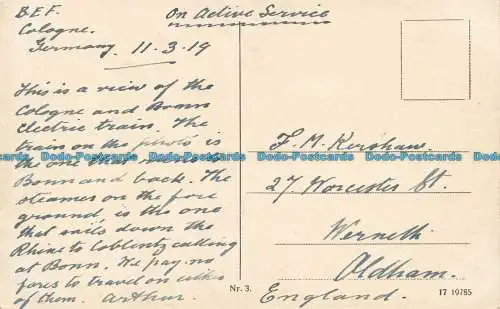 B.E.F.
Cologne.
Germany 11-3-19
On Active Service
This is a view of the
Cologne and Bonn
Electric train. The
train on the photo is
the one that
Bonn and back. The
steamer on the fore
ground, is the one
that sails down the
Rhine to Coblentz calling
at Bonn. We pay no
fares to travel on either
of them. Arthur.
F. M. Kershaw.
27, Worcester St.
Werneth
Oldham.
England.
Nr. 3.
17 19785
Dodo-Postcards Dodo-Postcards Dodo-Postcards Dodo-Postcards Dodo-Postcards